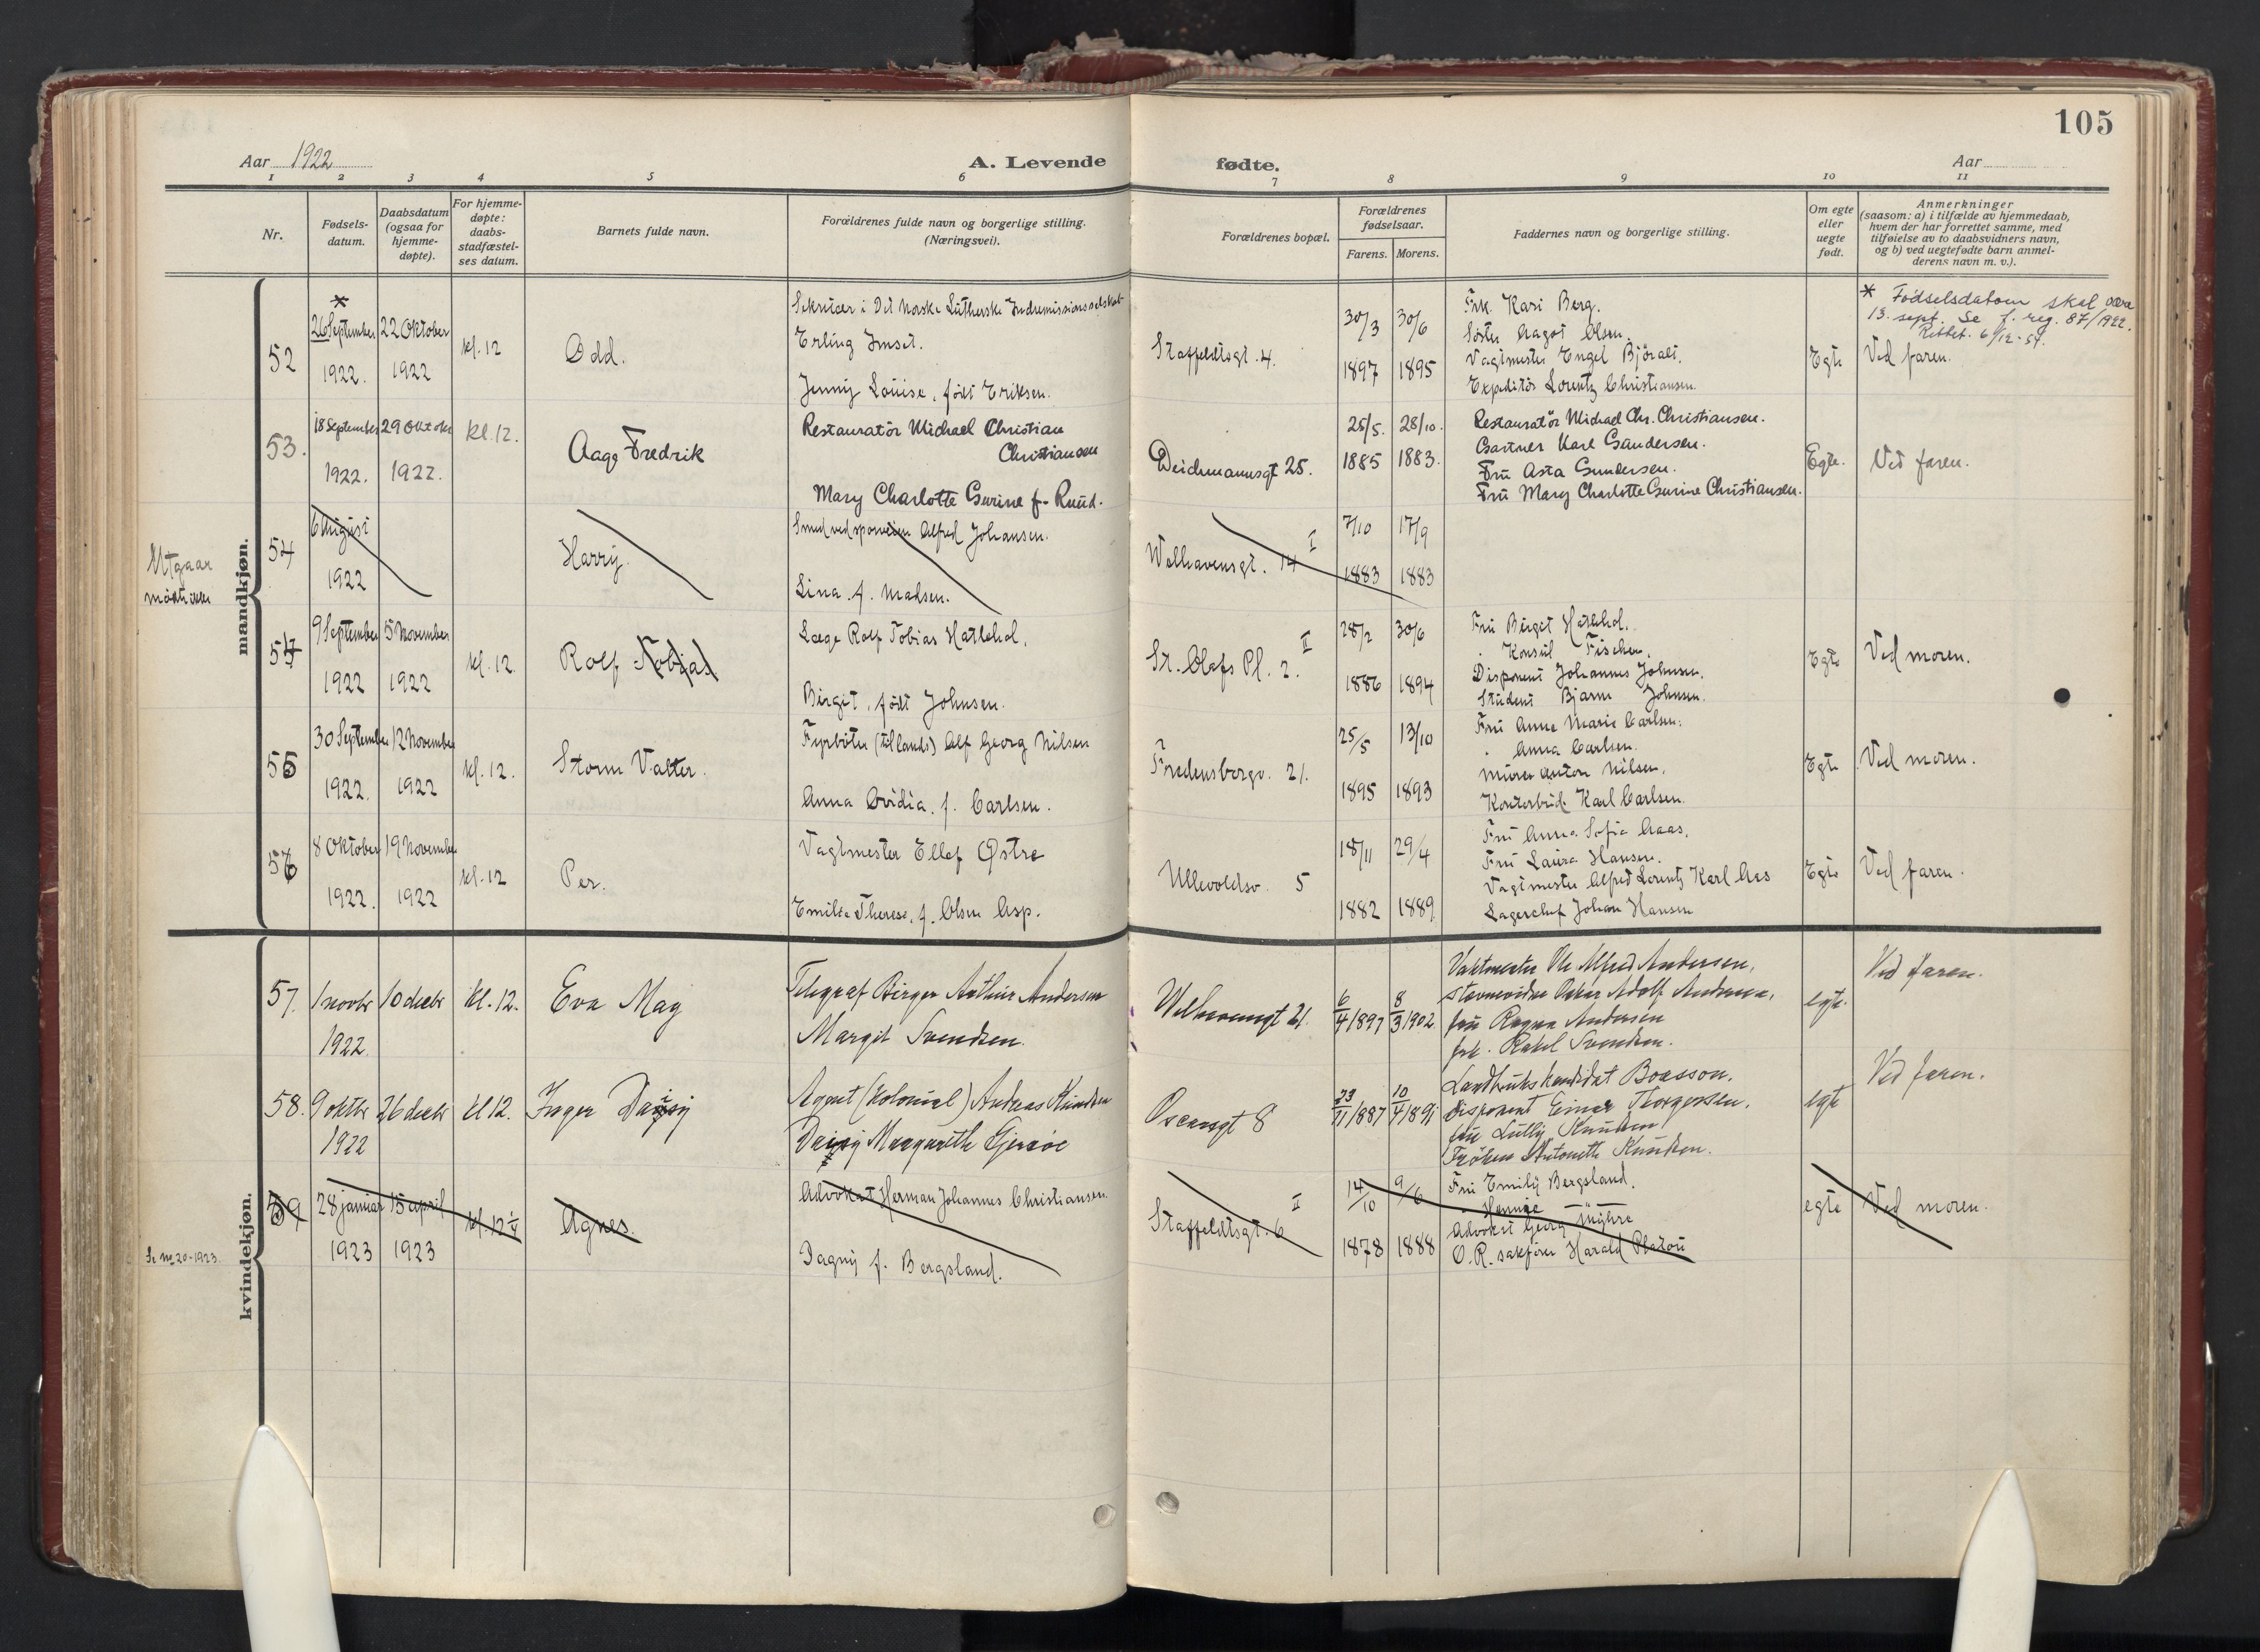 105
Aar 1922
A. Levende fødte.
Aar
1 2 3 4 5 6 7 8 9 10 11
Nr.
Fødsels-
datum.
Daabsdatum
(ogsaa for
hjemme-
døpte).
For hjemme-
døpte:
daabs-
stadfæstel-
ses datum.
Barnets fulde navn.
Forældrenes fulde navn og borgerlige stilling.
(Næringsvei).
Forældrenes bopæl.
Forældrenes
fødselsaar.
Farens. Morens.
Faddernes navn og borgerlige stilling.
Om egte
eller
uegte
født.
Anmerkninger
(saasom: a) i tilfælde av hjemmedaab,
hvem der har forrettet samme, med
tilføielse av to daabsvidners navn,
og b) ved uegtefødte barn anmel-
derens navn m. v.).
mandkjøn.
52
*
26 September
1922.
22 Oktober
1922
kl. 12
Odd.
Sekretær i Det Norske Lutherske Indremissionsselskab
Erling Imset.
Jenny Louise, født Eriksen.
Staffeldtsgt. 4.
30/3
1897
30/6
1895
Frk. Kari Berg.
Søster Aagot Olsen.
Vagtmester Engel Bjøralt.
Expeditør Lorentz Christiansen.
Egte
* Fødselsdatoen skal være
13. sept. Se f. reg. 87/1922.
Rettet. 6/12-57.
Ved faren.
53.
18 September
1922.
29 Oktober
1922.
Kl. 12.
Aage Fredrik
Restauratør Michael Christian
Christiansen
Mary Charlotte Gurine f. Ruud.
Deichmannsgt 25.
25/5.
1885
28/10.
1883.
Restauratør Michael Chr. Christiansen.
Gartner Karl Gundersen.
Fru Asta Gundersen.
Fru Mary Charlotte Gurine Christiansen.
Egte.
Ved faren.
Utgaar
møtte ikke
54
6 August
1922
Harry.
Smed ved sporveien Alfred Johansen.
Lina f. Madsen.
Welhavensgt. 14 II
7/10
1883
17/9
1883
54
9 September
1922
5 November
1922
kl. 12
Rolf Tobias
Læge Rolf Tobias Hatlehol.
Birgit, født Johnsen.
St. Olafs Pl. 2. II
28/2
1886
30/6
1894
Fru Birgit Hatlehol.
" Konsul Fischer.
Disponent Johannes Johnsen.
Student Bjarne Johnsen.
Egte
Ved moren.
55
30 September
1922.
12 November
1922
kl. 12.
Storm Valter.
Fyrbøter (tillands) Alf Georg Nilsen
Anna Ovidia. f. Carlsen.
Fredensborgv. 21.
25/5
1895
13/10
1893
Fru Anne Marie Carlsen.
" Anna Carlsen.
Murer Anton Nilsen.
Kontorbud Karl Carlsen.
Egte
Ved moren.
56
8 Oktober
1922.
19 November
1922
kl. 12
Per.
Vagtmester Ellef Østre
Emilie Therese, f. Olsen Asp.
Ullevoldsv. 5
18/11
1882
29/4
1889
Fru Anna Sofie Aaas.
Fru Laura Hansen.
Vagtmester Alfred Lorentz Karl Aas
Lagerchef Johan Hansen
Egte
Ved faren.
kvindekjøn.
57.
1 novbr
1922.
10 decbr
Kl. 12.
Eva May
Telegraf Birger Arthur Andersen
Margit Svendsen.
Welhavensgt 21.
6/4 1897
8/3 1902.
Vaktmester Ole Alfred Andersen,
Oskar Adolf Andersen,
fru Ragna Andersen
frk. Rakel Svendsen.
egte.
Ved faren.
58.
9 oktbr
1922
26 decbr
kl 12.
Inger Daisy
Agent (kolonial) Andreas Knudsen
Daisy Margareth Gjersøe
Oscarsgt 8
23/11 1887
10/4 1891
Landbrukskandidat Boasson.
Disponent Einar Thorgersen.
fru Lully Knudsen
Frøken Antonette Knudsen.
egte
Ved faren.
Se no 20-1923.
59
28 januar
1923
15 april
1923
kl. 12¼
Agnes.
Advokat Herman Johannes Christiansen.
Dagny f. Bergsland.
Staffeldtsgt. 6 II
14/10
1878
9/6
1888
Fru Emily Bergsland.
" Hennie "
Advokat Georg Myhre
O. R. sakfører Harald Platou
egte
Ved moren.